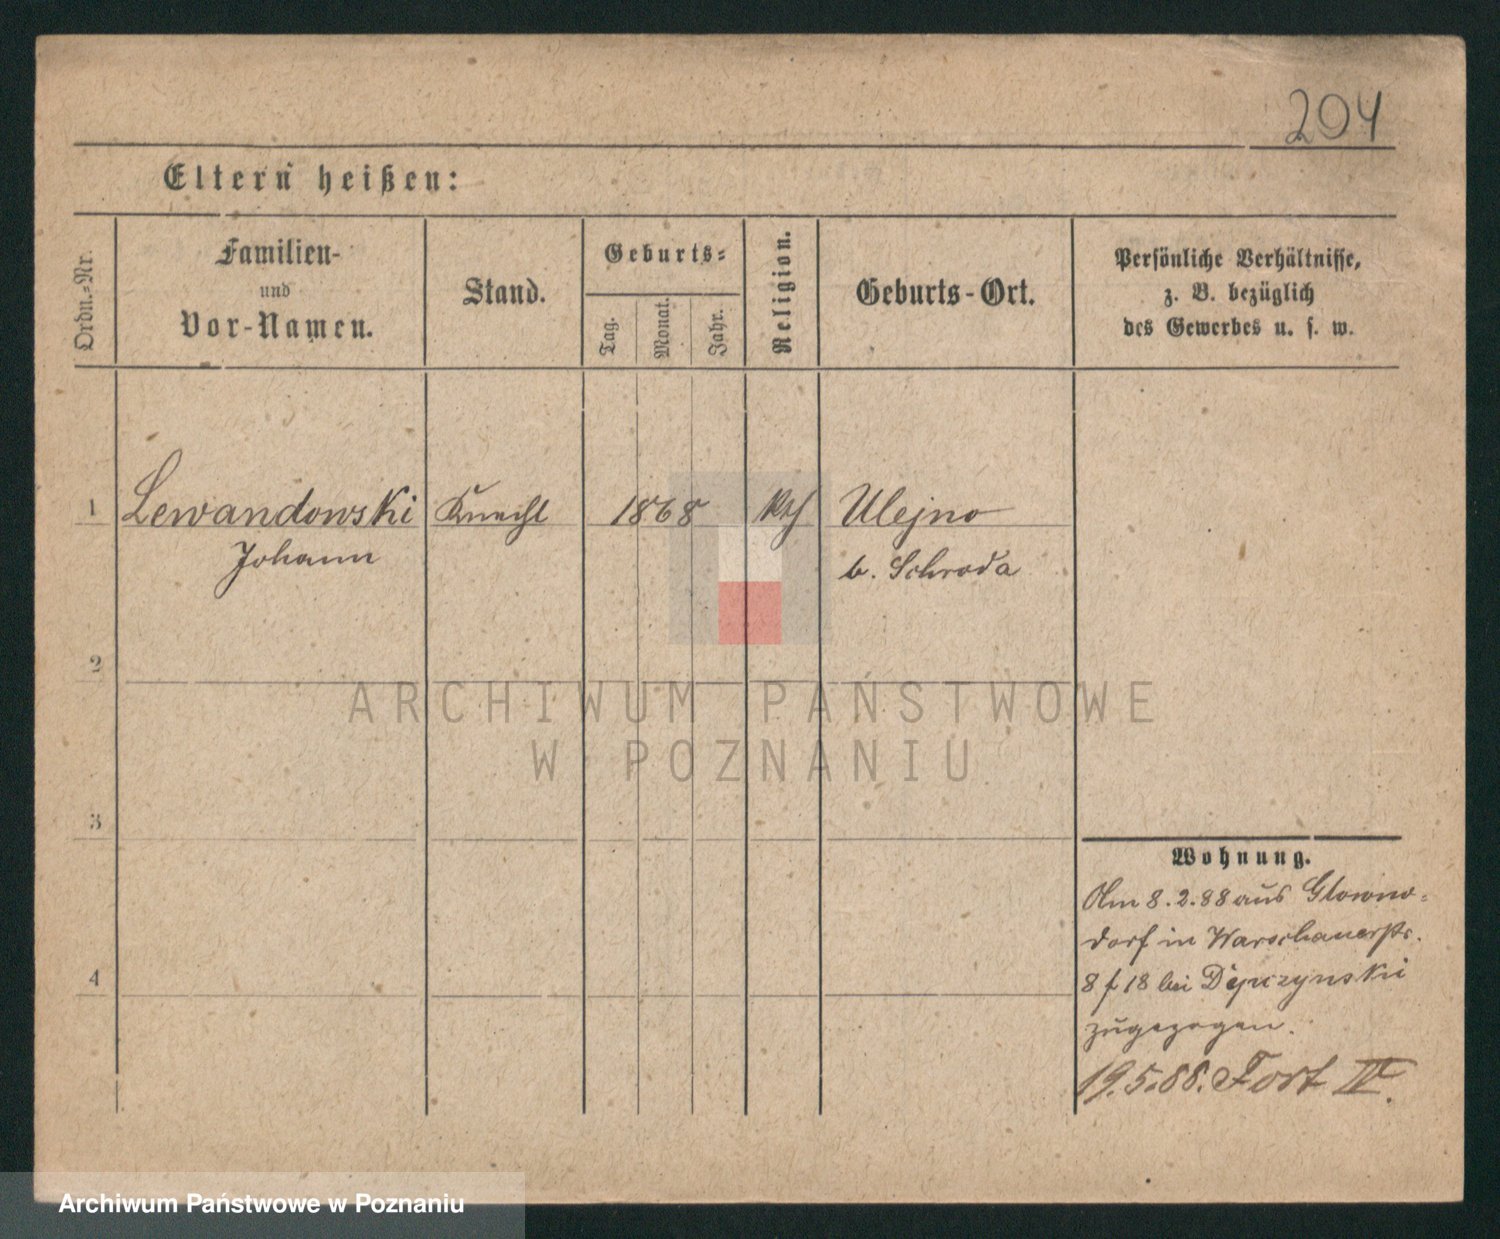 204
Eltern heißen:
Ordn.-Nr.
Familien-
und
Vor-Namen.
Stand.
Geburts-
Tag.
Monat.
Jahr.
Religion.
Geburts-Ort.
Persönliche Verhältnisse,
z. B. bezüglich
des Gewerbes u. s. w.
1 Lewandowski Knecht 1868 kth Ulejno
Johann b. Schroda
2
ARCHIWUM PAŃSTWOWE
W POZNANIU
3
Wohnung.
Am 8.2.88 aus Glowno-
dorf in Warschauerstr.
8 f 18 bei
4
zugezogen.
19.5.88. Fort IV.
Archiwum Państwowe w Poznaniu